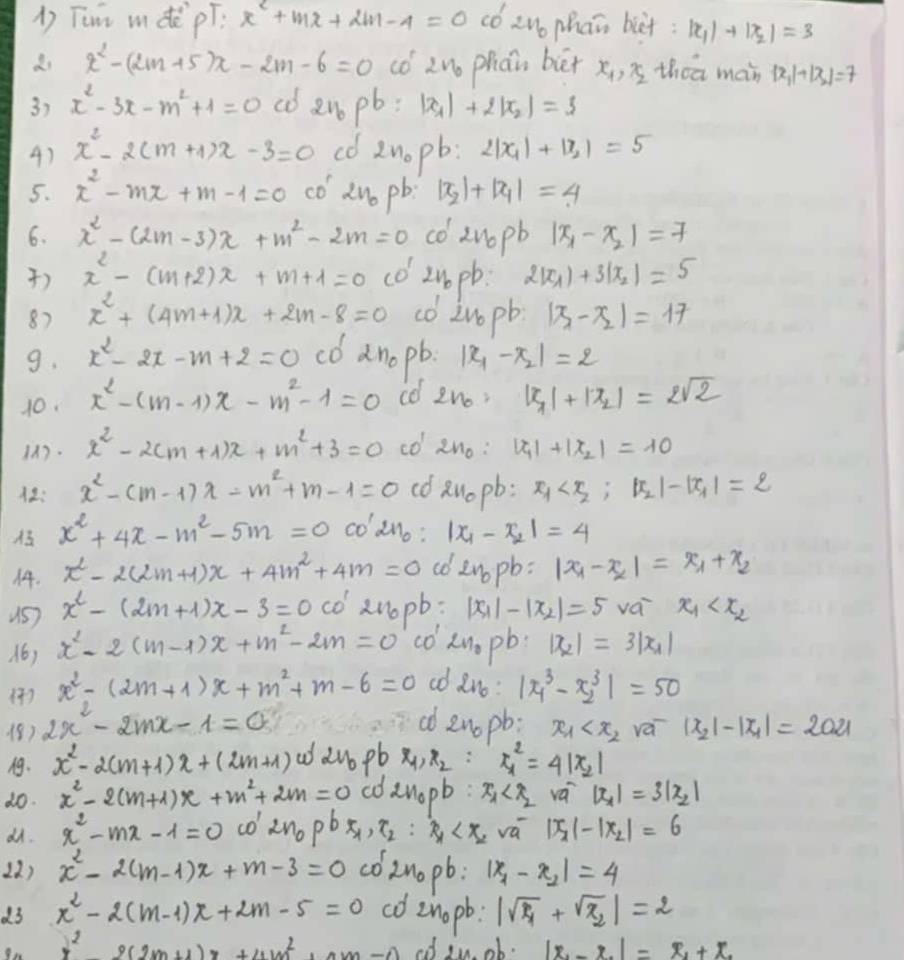 1) Tìm m để pT: x² + mx + 2m - 1 = 0 có 2n₀ phân biệt : |x₁| + |x₂| = 3
2. x² - (2m+5)x - 2m - 6 = 0 có 2n₀ phân biệt x₁, x₂ thỏa mãn |x₁|+|x₂|=7
3) x² - 3x - m² + 1 = 0 có 2n₀ pb: |x₁| + 2|x₂| = 3
4) x² - 2(m+1)x - 3 = 0 có 2n₀ pb: 2|x₁| + |x₂| = 5
5. x² - mx + m - 1 = 0 có 2n₀ pb: |x₂| + |x₁| = 4
6. x² - (2m-3)x + m² - 2m = 0 có 2n₀ pb |x₁ - x₂| = 7
7) x² - (m+2)x + m + 1 = 0 có 2n₀ pb: 2|x₁| + 3|x₂| = 5
8) x² + (4m+1)x + 2m - 8 = 0 có 2n₀ pb: |x₁ - x₂| = 17
9. x² - 2x - m + 2 = 0 có 2n₀ pb: |x₁ - x₂| = 2
10. x² - (m-1)x - m² - 1 = 0 có 2n₀ : |x₁| + |x₂| = 2√2
11). x² - 2(m+1)x + m² + 3 = 0 có 2n₀ : |x₁| + |x₂| = 10
12: x² - (m-1)x - m² + m - 1 = 0 có 2n₀ pb: x₁ < x₂ ; |x₂| - |x₁| = 2
13 x² + 4x - m² - 5m = 0 có 2n₀ : |x₁ - x₂| = 4
14. x² - 2(2m+1)x + 4m² + 4m = 0 có 2n₀ pb: |x₁ - x₂| = x₁ + x₂
15) x² - (2m+1)x - 3 = 0 có 2n₀ pb: |x₁| - |x₂| = 5 và x₁ < x₂
16) x² - 2(m-1)x + m² - 2m = 0 có 2n₀ pb: |x₂| = 3|x₁|
17) x² - (2m+1)x + m² + m - 6 = 0 có 2n₀ : |x₁³ - x₂³| = 50
18) 2x² - 2mx - 1 = 0 có 2n₀ pb: x₁ < x₂ và |x₂| - |x₁| = 2021
19. x² - 2(m+1)x + (2m+1) có 2n₀ pb x₁, x₂ : x₁² = 4|x₂|
20. x² - 2(m+1)x + m² + 2m = 0 có 2n₀ pb : x₁ < x₂ và |x₁| = 3|x₂|
21. x² - mx - 1 = 0 có 2n₀ pb x₁, x₂ : x₁ < x₂ và |x₁| - |x₂| = 6
22) x² - 2(m-1)x + m - 3 = 0 có 2n₀ pb: |x₁ - x₂| = 4
23 x² - 2(m-1)x + 2m - 5 = 0 có 2n₀ pb: |√x₁ + √x₂| = 2